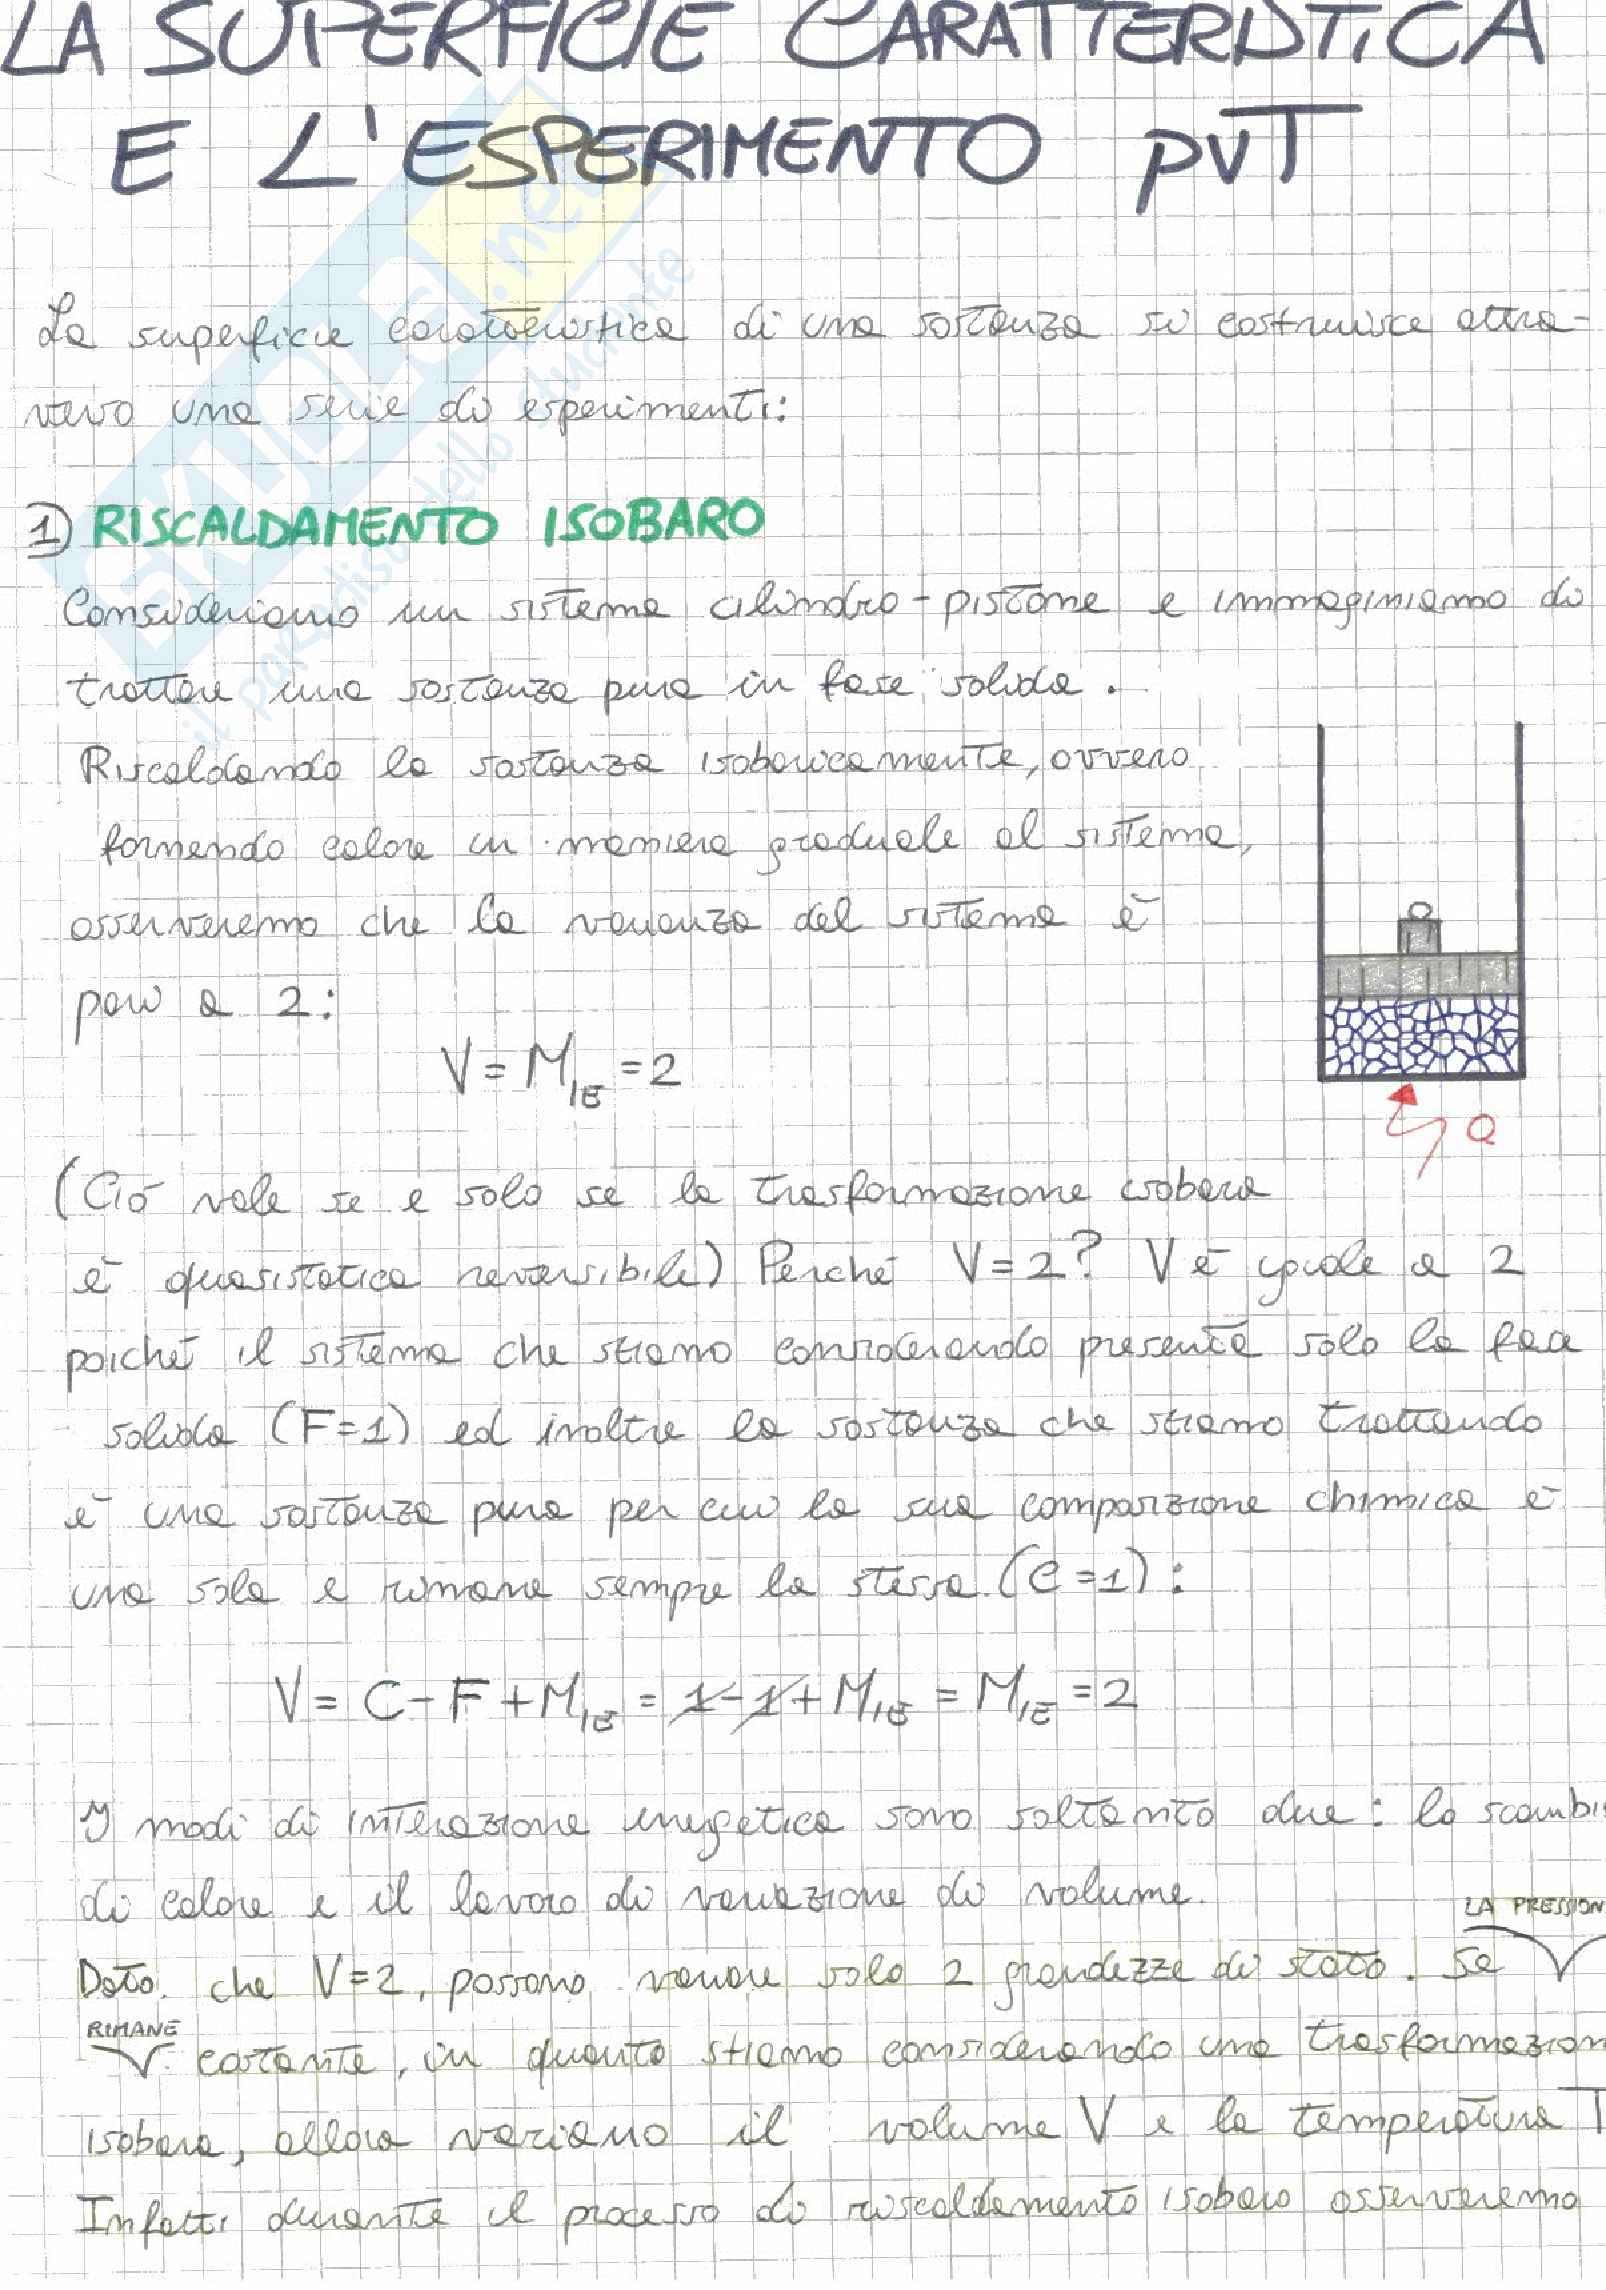 LA SUPERFICIE CARATTERISTICA
E L'ESPERIMENTO pvT
SKUOLA.net
il paradiso dello studente
La superficie caratteristica di una sostanza si costruisce attra-
verso una serie di esperimenti:
1) RISCALDAMENTO ISOBARO
Consideriamo un sistema cilindro-pistone e immaginiamo di
trattare una sostanza pura in fase solida.
Riscaldando la sostanza isobaricamente, ovvero
fornendo calore in maniera graduale al sistema,
osserveremo che la varianza del sistema è
pari a 2:
V = M_IE = 2
Q
(Ciò vale se e solo se la trasformazione isobara
è quasistatica reversibile) Perché V=2? V è uguale a 2
poiché il sistema che stiamo considerando presenta solo la fase
solida (F=1) ed inoltre la sostanza che stiamo trattando
è una sostanza pura per cui la sua composizione chimica è
una sola e rimane sempre la stessa (C=1):
V = C - F + M_IE = 1 - 1 + M_IE = M_IE = 2
I modi di interazione energetica sono soltanto due: lo scambio
di calore e il lavoro di variazione di volume.
LA PRESSION
Dato che V=2, possono variare solo 2 grandezze di stato. Se
RIMANE
costante, in quanto stiamo considerando una trasformazion
isobara, allora variano il volume V e la temperatura T
Infatti durante il processo di riscaldamento isobaro osserveremo